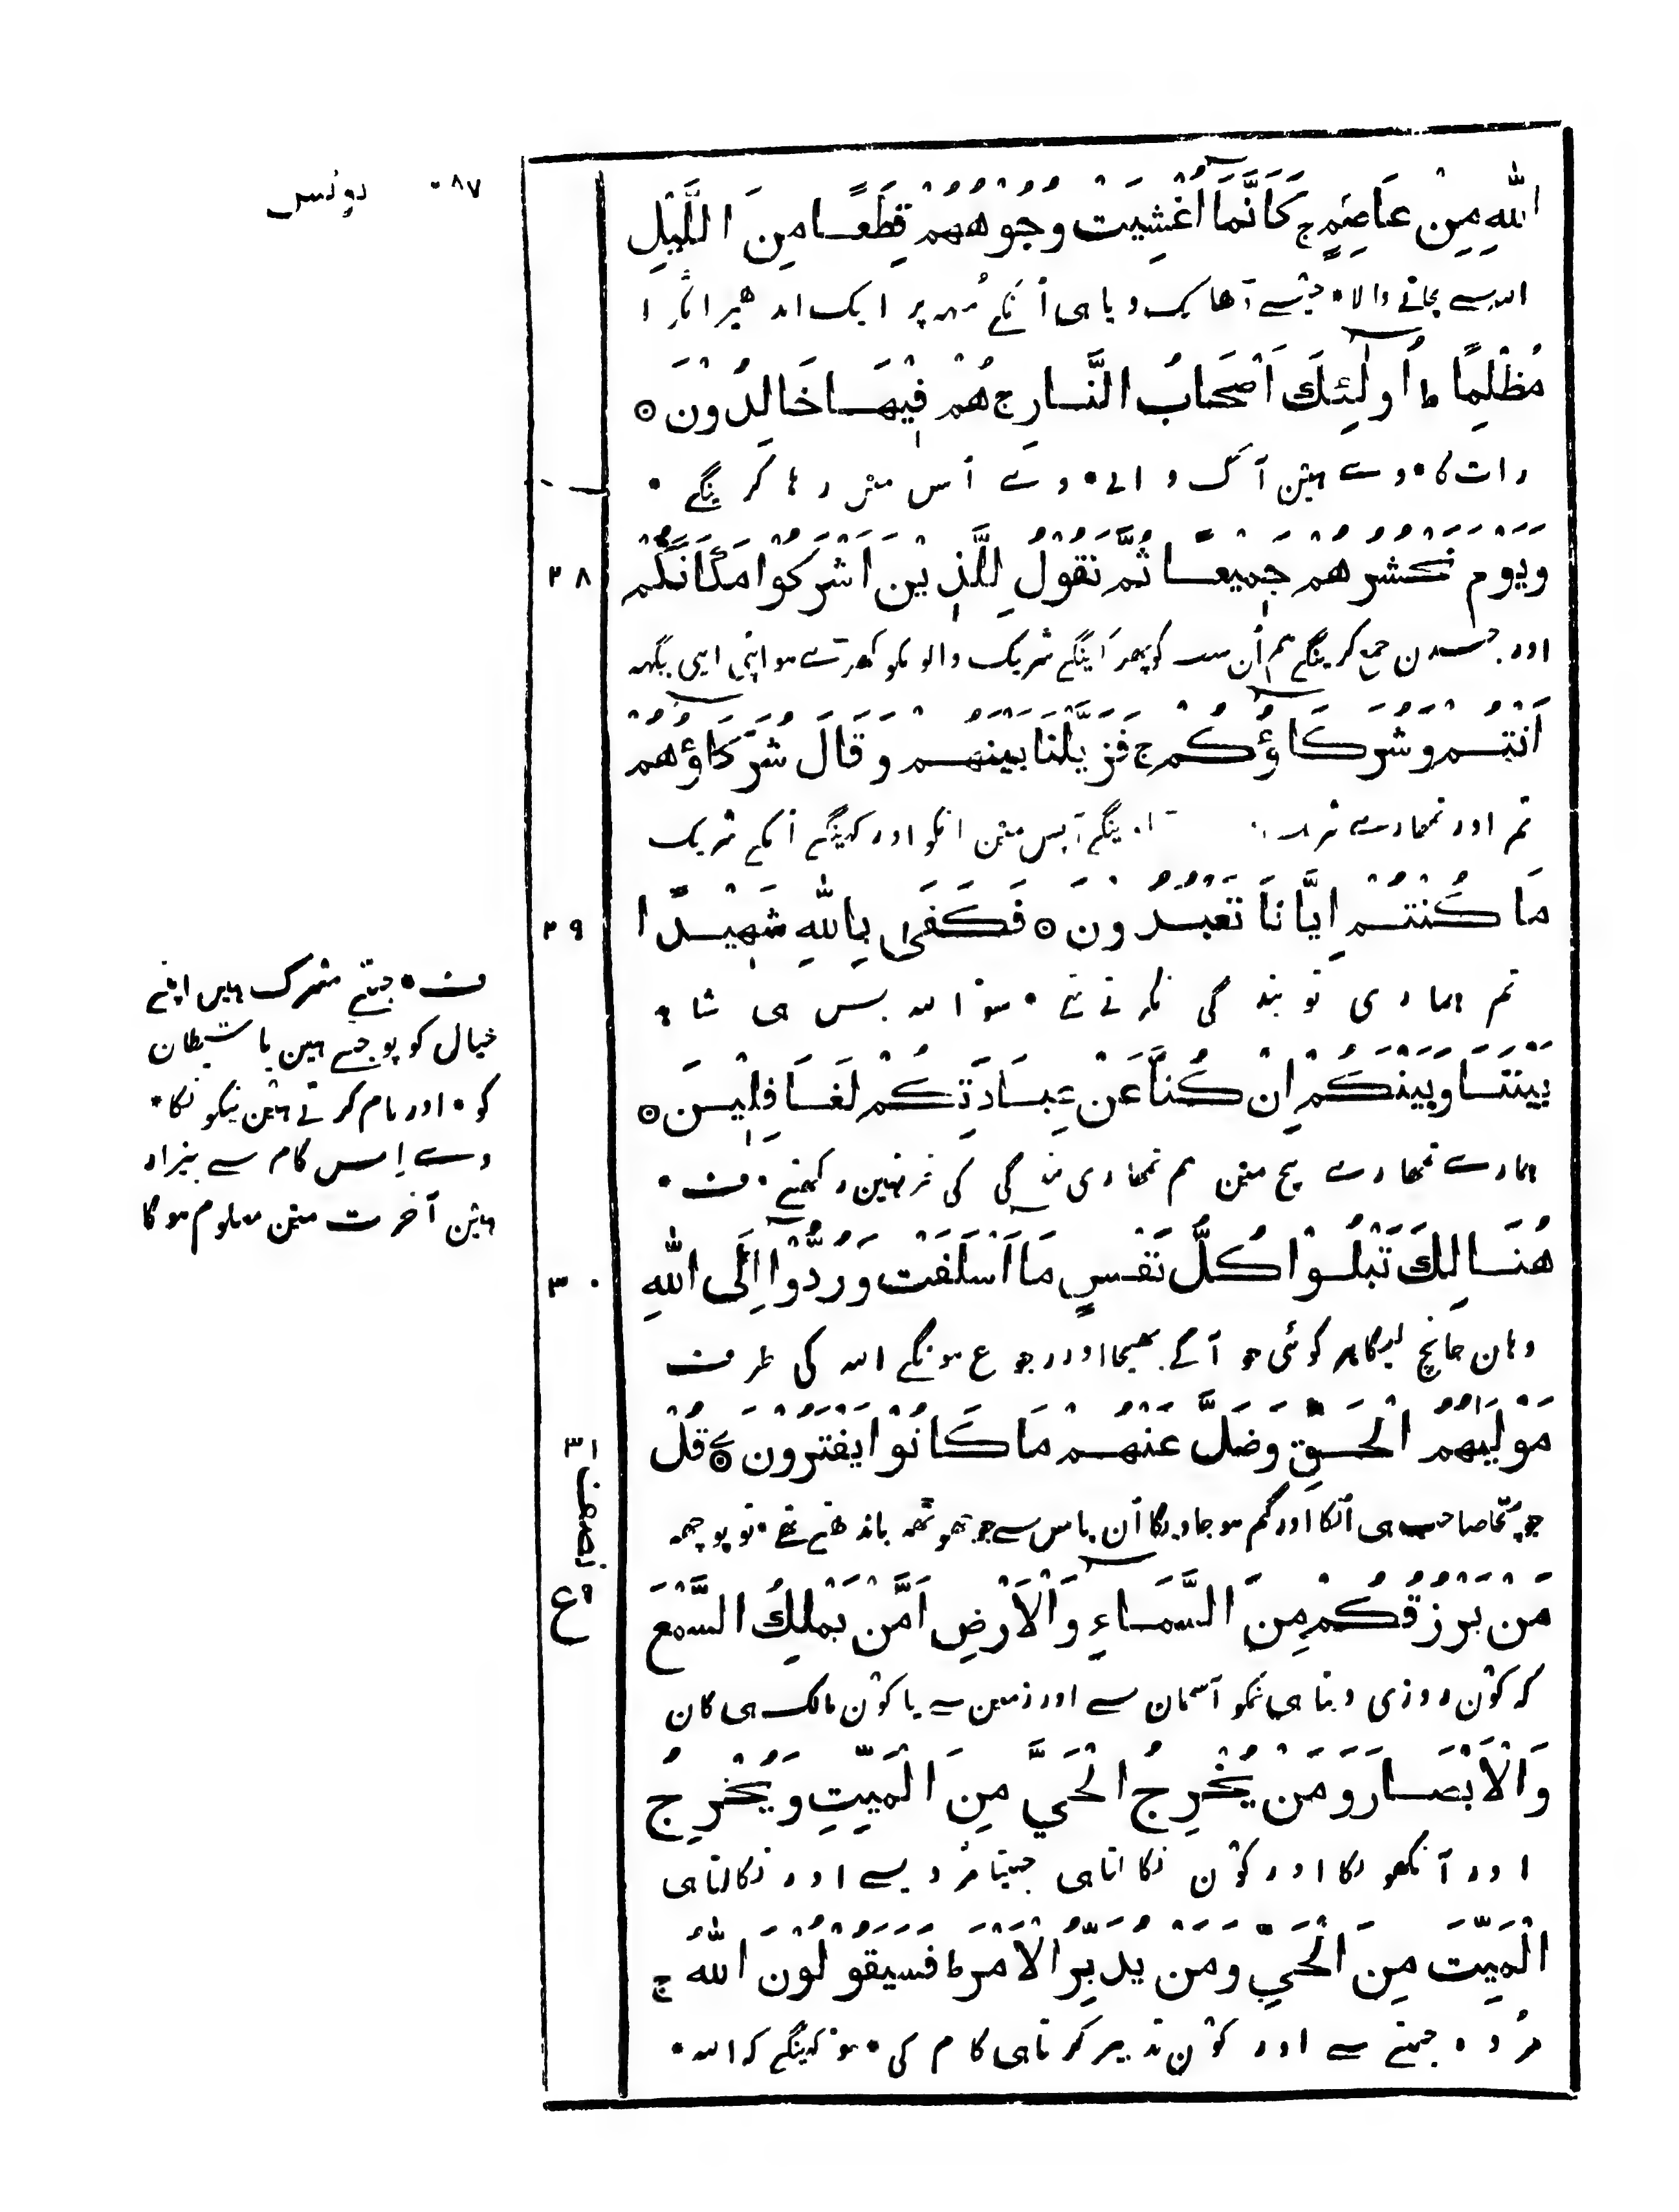 یونس ۰۸۷
اللّٰهِ مِنْ عَاصِمٍ ج كَاَنَّمَا اُغْشِيَتْ وُجُوْهُهُمْ قِطَعًا مِنَ اللَّيْلِ
اللہ سے بچانے والا • جیسے ڈھانک دیا ہی اُنکے مُنہ پر ایک اندھیرا ٹکرا
مُظْلِمًا ط اُولٰٓئِكَ اَصْحَابُ النَّارِ ج هُمْ فِيْهَا خَالِدُوْنَ ۝
رات کا • وے ہین آگ والے • وے اُس مین رہا کرینگے •
۲۸
وَيَوْمَ نَحْشُرُهُمْ جَمِيْعًا ثُمَّ نَقُوْلُ لِلَّذِيْنَ اَشْرَكُوْا مَكَانَكُمْ
اور جسدن جمع کرینگے ہم اُن سب کو پھر کہینگے شریک والونکو کھڑے ہو اپنی اپنی جگہہ
اَنْتُمْ وَشُرَكَاؤُكُمْ ج فَزَيَّلْنَا بَيْنَهُمْ وَقَالَ شُرَكَاؤُهُمْ
تم اور تمھارے آپس مین انکو اور کہینگے اُنکے شریک
۲۹
مَا كُنْتُمْ اِيَّانَا تَعْبُدُوْنَ ۝ فَكَفٰى بِاللّٰهِ شَهِيْدًا
تم ہماری تو بندگی نکرتے تھے • سو اللہ بس ہی شاہد
بَيْنَنَا وَبَيْنَكُمْ اِنْ كُنَّا عَنْ عِبَادَتِكُمْ لَغَافِلِيْنَ ۝
ہمارے تمھارے بیچ مین ہم تمھاری بندگی کی خبر نہین رکھتے • ف •
۳۰
هُنَالِكَ تَبْلُوْا كُلُّ نَفْسٍ مَا اَسْلَفَتْ وَرُدُّوْا اِلَى اللّٰهِ
وہان جانچ لیگا ہر کوئی جو آگے بھیجا اور رجوع ہونگے اللہ کی طرف
۳۱
مَوْلٰيهُمُ الْحَقِّ وَضَلَّ عَنْهُمْ مَا كَانُوْا يَفْتَرُوْنَ ۝ قُلْ
جو سچّا صاحب ہی اُنکا اور گم ہو جاویگا اُن پاس سے جو جھوٹھہ باندھتے تھے • تو پوچھہ
نصف
۹ ع
مَنْ يَرْزُقُكُمْ مِنَ السَّمَاءِ وَالْاَرْضِ اَمَّنْ يَمْلِكُ السَّمْعَ
کہ کون روزی دیتا ہی تمکو آسمان سے اور زمین سے یا کون مالک ہی کان
وَالْاَبْصَارَ وَمَنْ يُخْرِجُ الْحَيَّ مِنَ الْمَيِّتِ وَيُخْرِجُ
اور آنکھونکا اور کون نکالتا ہی جیتا مُردیسے اور نکالتا ہی
الْمَيِّتَ مِنَ الْحَيِّ وَمَنْ يُدَبِّرُ الْاَمْرَ ط فَسَيَقُوْلُوْنَ اللّٰهُ ج
مُردہ جیتے سے اور کون تدبیر کرتا ہی کام کی • سو کہینگے کہ اللہ •
ف • جتنے مشرک ہین اپنے
خیال کو پوجتے ہین یا شیطان
کو • اور نام کرتے ہین نیکونکا •
وے اِس کام سے بیزار
ہین آخرت مین معلوم ہوگا